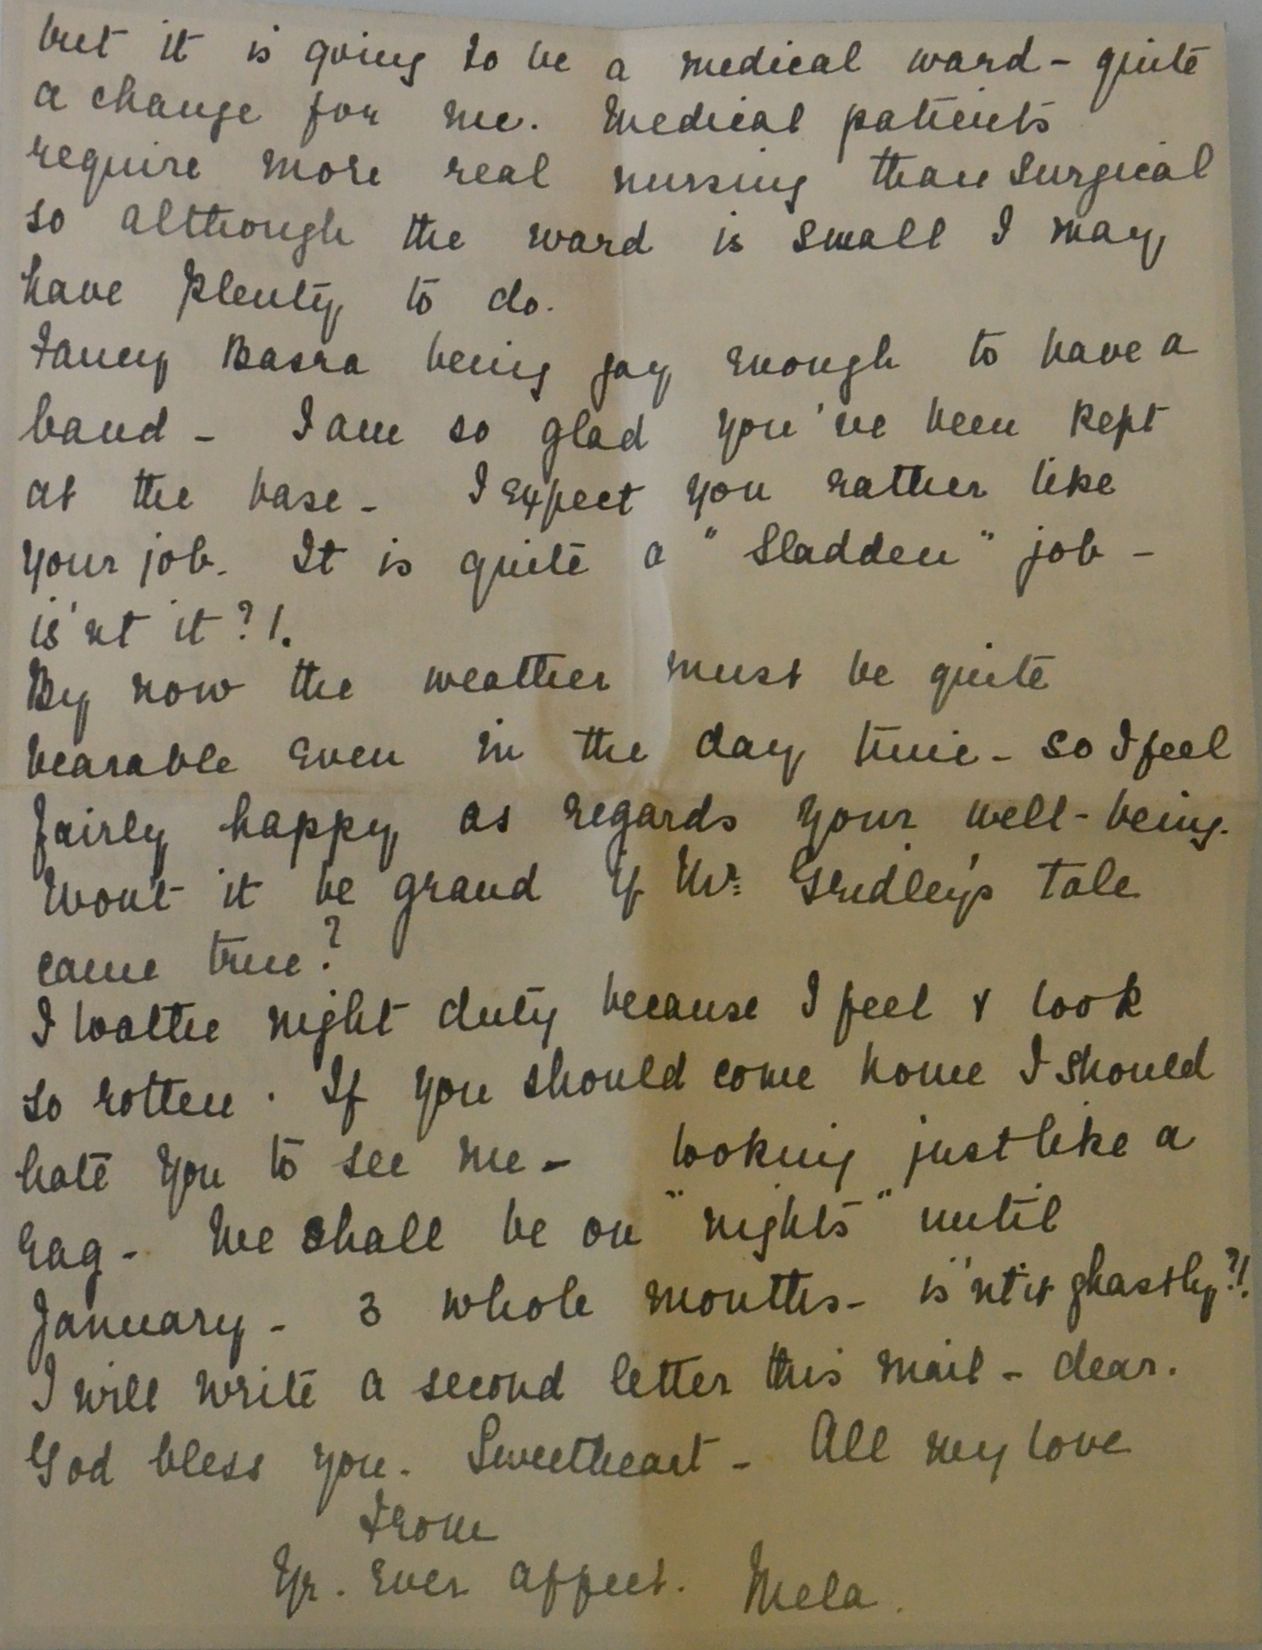 but it is going to be a medical ward - quite
a change for me. Medical patients
require more real nursing than surgical
so although the ward is small I may
have plenty to do.
Fancy Basra being gay enough to have a
band - I am so glad you've been kept
at the base - I expect you rather like
your job. It is quite a "Sladden" job -
is'nt it?!.
By now the weather must be quite
bearable even in the day time - so I feel
fairly happy as regards your well-being.
Won't it be grand if Mr. Gridley's tale
came true?
I loathe night duty because I feel & look
so rotten. If you should come home I should
hate you to see me - looking just like a
rag - We shall be on "nights" until
January - 3 whole months - is'nt it ghastly?!
I will write a second letter this mail - dear.
God bless you. Sweetheart - All my love
From
Yr. ever affect. Mela.